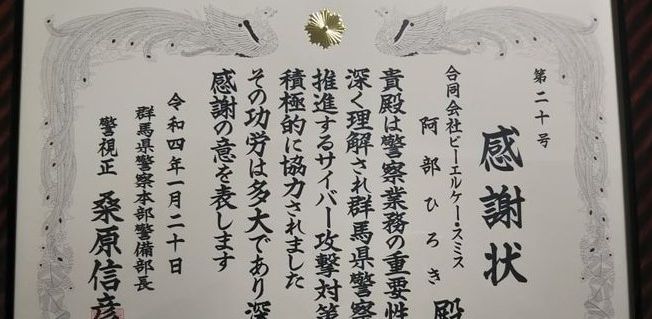 第二十号
感謝状
合同会社ビーエルケー・スミス
阿部ひろき 殿
貴殿は警察業務の重要性
深く理解され群馬県警察
推進するサイバー攻撃対策
積極的に協力されました
その功労は多大であり深
感謝の意を表します
令和四年一月二十日
群馬県警察本部警備部長
警視正 桑原信彦